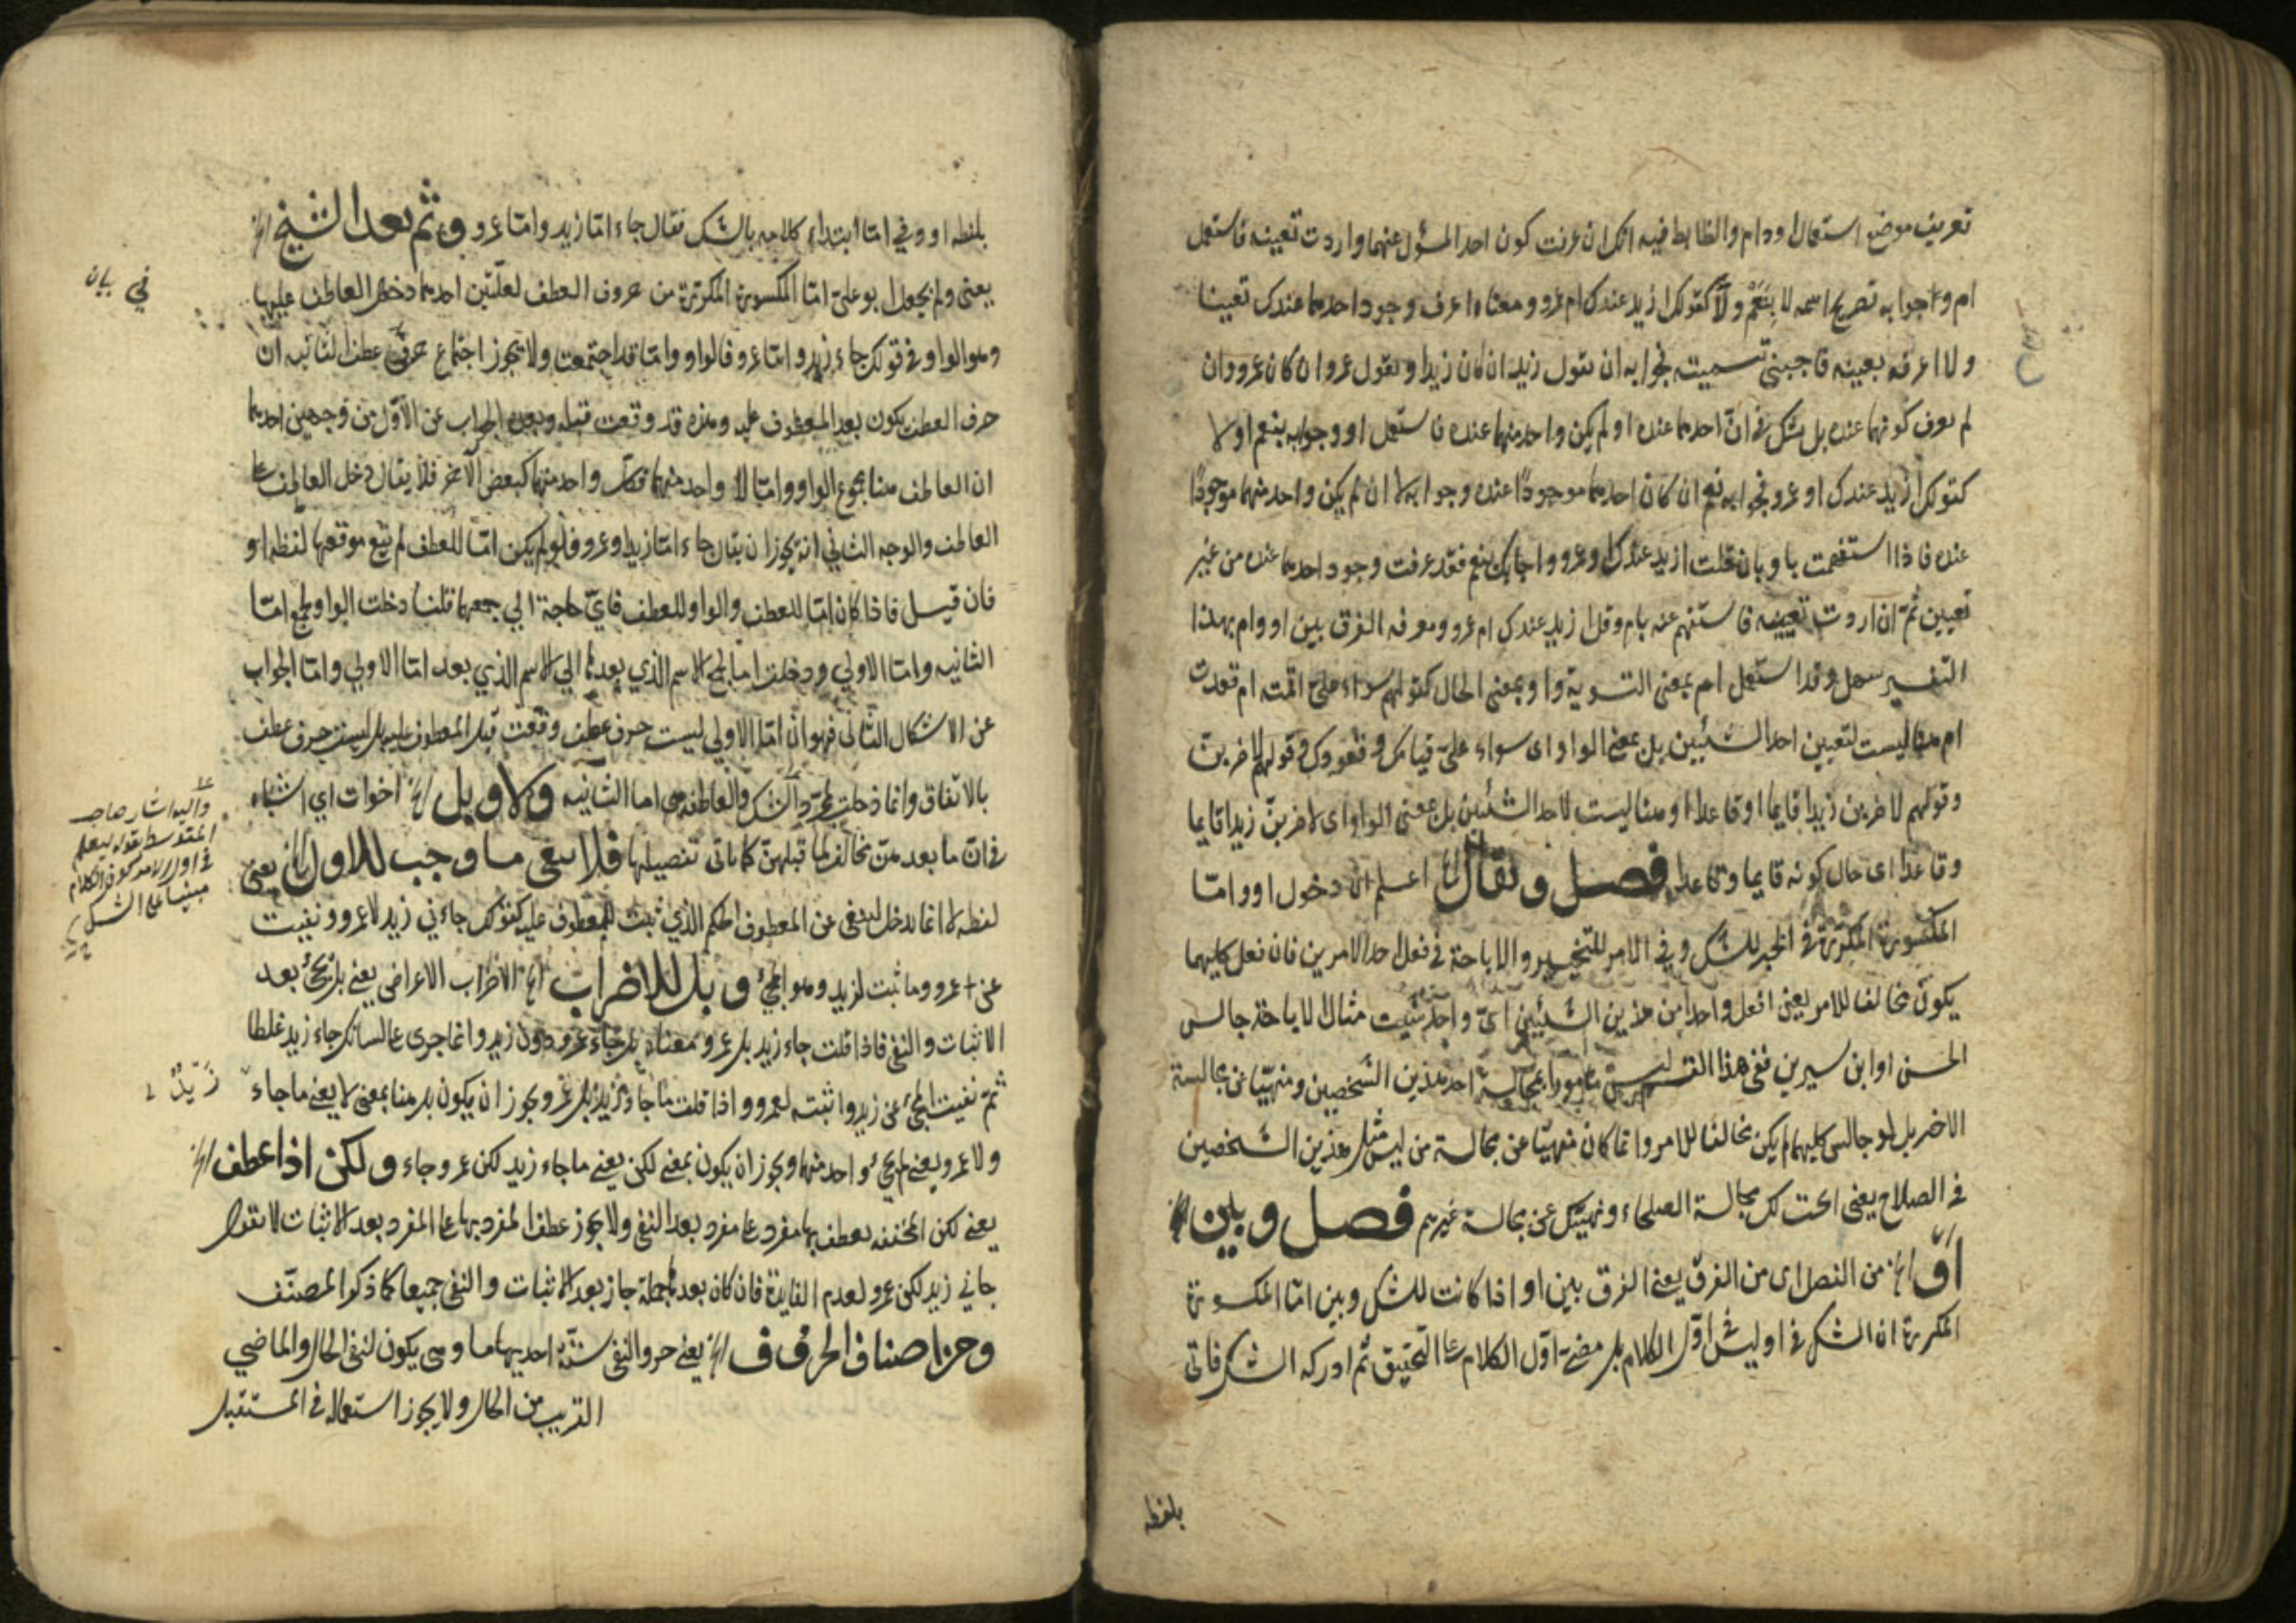 تعريف موضع استعمال او وام والضابط فيه انك ان عرفت كون احد المسؤل عنهما واردت تعيينه فاستعمل
ام وجوابه تصريح اسمه لا بِنَعَمْ ولا كقولك ازيد عندك ام عمرو ومعناه اعرف وجود احدهما عندك تعيينا
ولا اعرفه بعينه فاجبني تسميته فجوابه ان يقول زيد ان كان زيدا ويقول عمرو ان كان عمرو وان
لم يعرف كونهما عنده بل يشك في انّ احدهما عنده او لم يكن واحد منهما عنده فاستعمل او وجوابه بنعم او لا
كقولك ازيد عندك او عمرو فجوابه نعم ان كان احدهما موجودًا عنده وجوابه لا ان لم يكن واحد منهما موجودًا
عنده فاذا استفهمت باو بان قلت ازيد عندك او عمرو واجابك بنعم فقد عرفت وجود احدهما عنده من غير
تعيين ثمّ ان اردت تعيينه فاستفهم عنه بام وقل ازيد عندك ام عمرو ومعرفه الفرق بين او وام بهذا
التفسير سهل وقد استعمل ام بمعنى التسوية واو بمعنى الحال كقولهم سواء عليّ اقمت ام قعدت
ام هنا ليست لتعيين احد الشيئين بل بمعنى الواو اى سواء عليّ قيامك وقعودك وقولهم لاضربنّ
وقولهم لاضربن زيدا قايما او قاعدا او هنا ليست لاحد الشيئين بل بمعنى الواو اى لاضربنّ زيدا قايما
وقاعدا اى حال كونه قايما وقاعدا فصل ويقال الخ اعلم ان دخول او وامّا
المكسورة المكرّرة في الخبر للشك وفي الامر للتخيير والاباحة في فعل احد الامرين فان فعل كليهما
يكون مخالفا للامر يعنى افعل واحدا من هذين الشيئين اىّ واحد شئت مثال الاباحة جالس
الحسن او ابن سيرين ففي هذا القد ليس مامورا بمجالسة احد هذين الشخصين ومنهيّا عن مجالسة
الاخر بل لو جالس كليهما لم يكن مخالفا للامر وانما كان منهيّا عن مجالسة من ليس مثل هذين الشخصين
في الصلاح يعنى ابحت لك مجالسة الصلحاء ونهيتك عن مجالسة غيرهم فصل وبين الخ
اوّ الخ من الفصل اى من الفرق يعنى الفرق بين او اذا كانت للشك وبين امّا المكسورة
المكررة ان الشك في او ليس في اوّل الكلام بل مضى اوّل الكلام على التحقيق ثم ادركه الشك فاتى
بلفظه
بلفظه او وفي امّا ابتداء كلامه بالشك فقال جاء امّا زيد وامّا عمرو وثم يعد الشيخ الخ
يعنى ولم يجعل ابو علىّ امّا المكسورة المكرّرة من حروف العطف لعلّتين احدهما دخول العاطف عليها
وهو الواو في قولك جاء زيد وامّا عمرو فالواو وامّا قد اجتمعت ولا يجوز اجتماع حرفي عطف الثانيه انّ
حرف العطف يكون بعد المعطوف عليه وهذه قد وقعت قبله والجواب عن الاوّل من وجهين احدهما
ان العاطف هنا مجموع الواو وامّا لا واحد منهما فكل واحد منهما كبعض الآخر فلا يقال دخل العاطف على
العاطف والوجه الثاني انه يجوز ان يقال جاء امّا زيد او عمرو فلو لم يكن امّا للعطف لم تقع موقعها لفظه او
فان قيل فاذا كان امّا للعطف والواو للعطف فايّ حاجة الي جمعهما قلنا دخلت الواو لجمع امّا
الثانيه وامّا الاولي ودخلت امّا لجمع الاسم الذي بعدها الي الاسم الذي بعد امّا الاولي وامّا الجواب
عن الاشكال الثاني فهو انّ امّا الاولي ليست حرف عطف وقعت قبل المعطوف عليه بل ليست حرف عطف
بالاتفاق وانما دخلت لمجرّد الشك والعاطفه هي امّا الثانيه ولا وبل الخ اخوات اي اشباه
في انّ ما بعدهنّ مخالف لما قبلهنّ كما ياتى تفصيلها فلا ينفى ما وجب للاول الخ يعنى
لفظه لا انما يدخل لينفى عن المعطوف الحكم الذي ثبت للمعطوف عليه كقولك جاءني زيد لا عمرو ونفيت
عن عمرو وما ثبت لزيد وهو المجئ وبل للاضراب الخ الاضراب الاعراض يعنى بل يجئ بعد
الاثبات والنفى فاذا قلت جاء زيد بل عمرو معناه بل جاء عمرو دون زيد وانما جرى على لسانك جاء زيد غلطا
ثمّ نفيت المجئ عن زيد واثبته لعمرو واذا قلت ما جاء زيد بل عمرو يجوز ان يكون بل هنا بمعنى لا يعنى ما جاء
ولا عمرو يعنى لم يجئ واحد منهما ويجوز ان يكون بمعنى لكن يعنى ما جاء زيد لكن عمرو جاء ولكن اذا عطف الخ
يعنى لكن المخففه يعطف بها مفرد على مفرد بعد النفى ولا يجوز عطف المفرد بها على المفرد بعد الاثبات لا تقول
جاني زيد لكن عمرو لعدم الفايدة فان كان بعدها جملة جاز بعد الاثبات والنفى جميعا كما ذكر المصنّف
ومن اصناف الحرف الخ يعنى حروف النفى ستّة احديها ما وهى يكون لنفى الحال والماضي
القريب من الحال ولا يجوز استعماله في المستقبل
في بيان
واليه اشار صاحب
المتوسط بقوله ليعلم
في اول الامر كون الكلام
مبنيا على الشك
زَيْدٌ